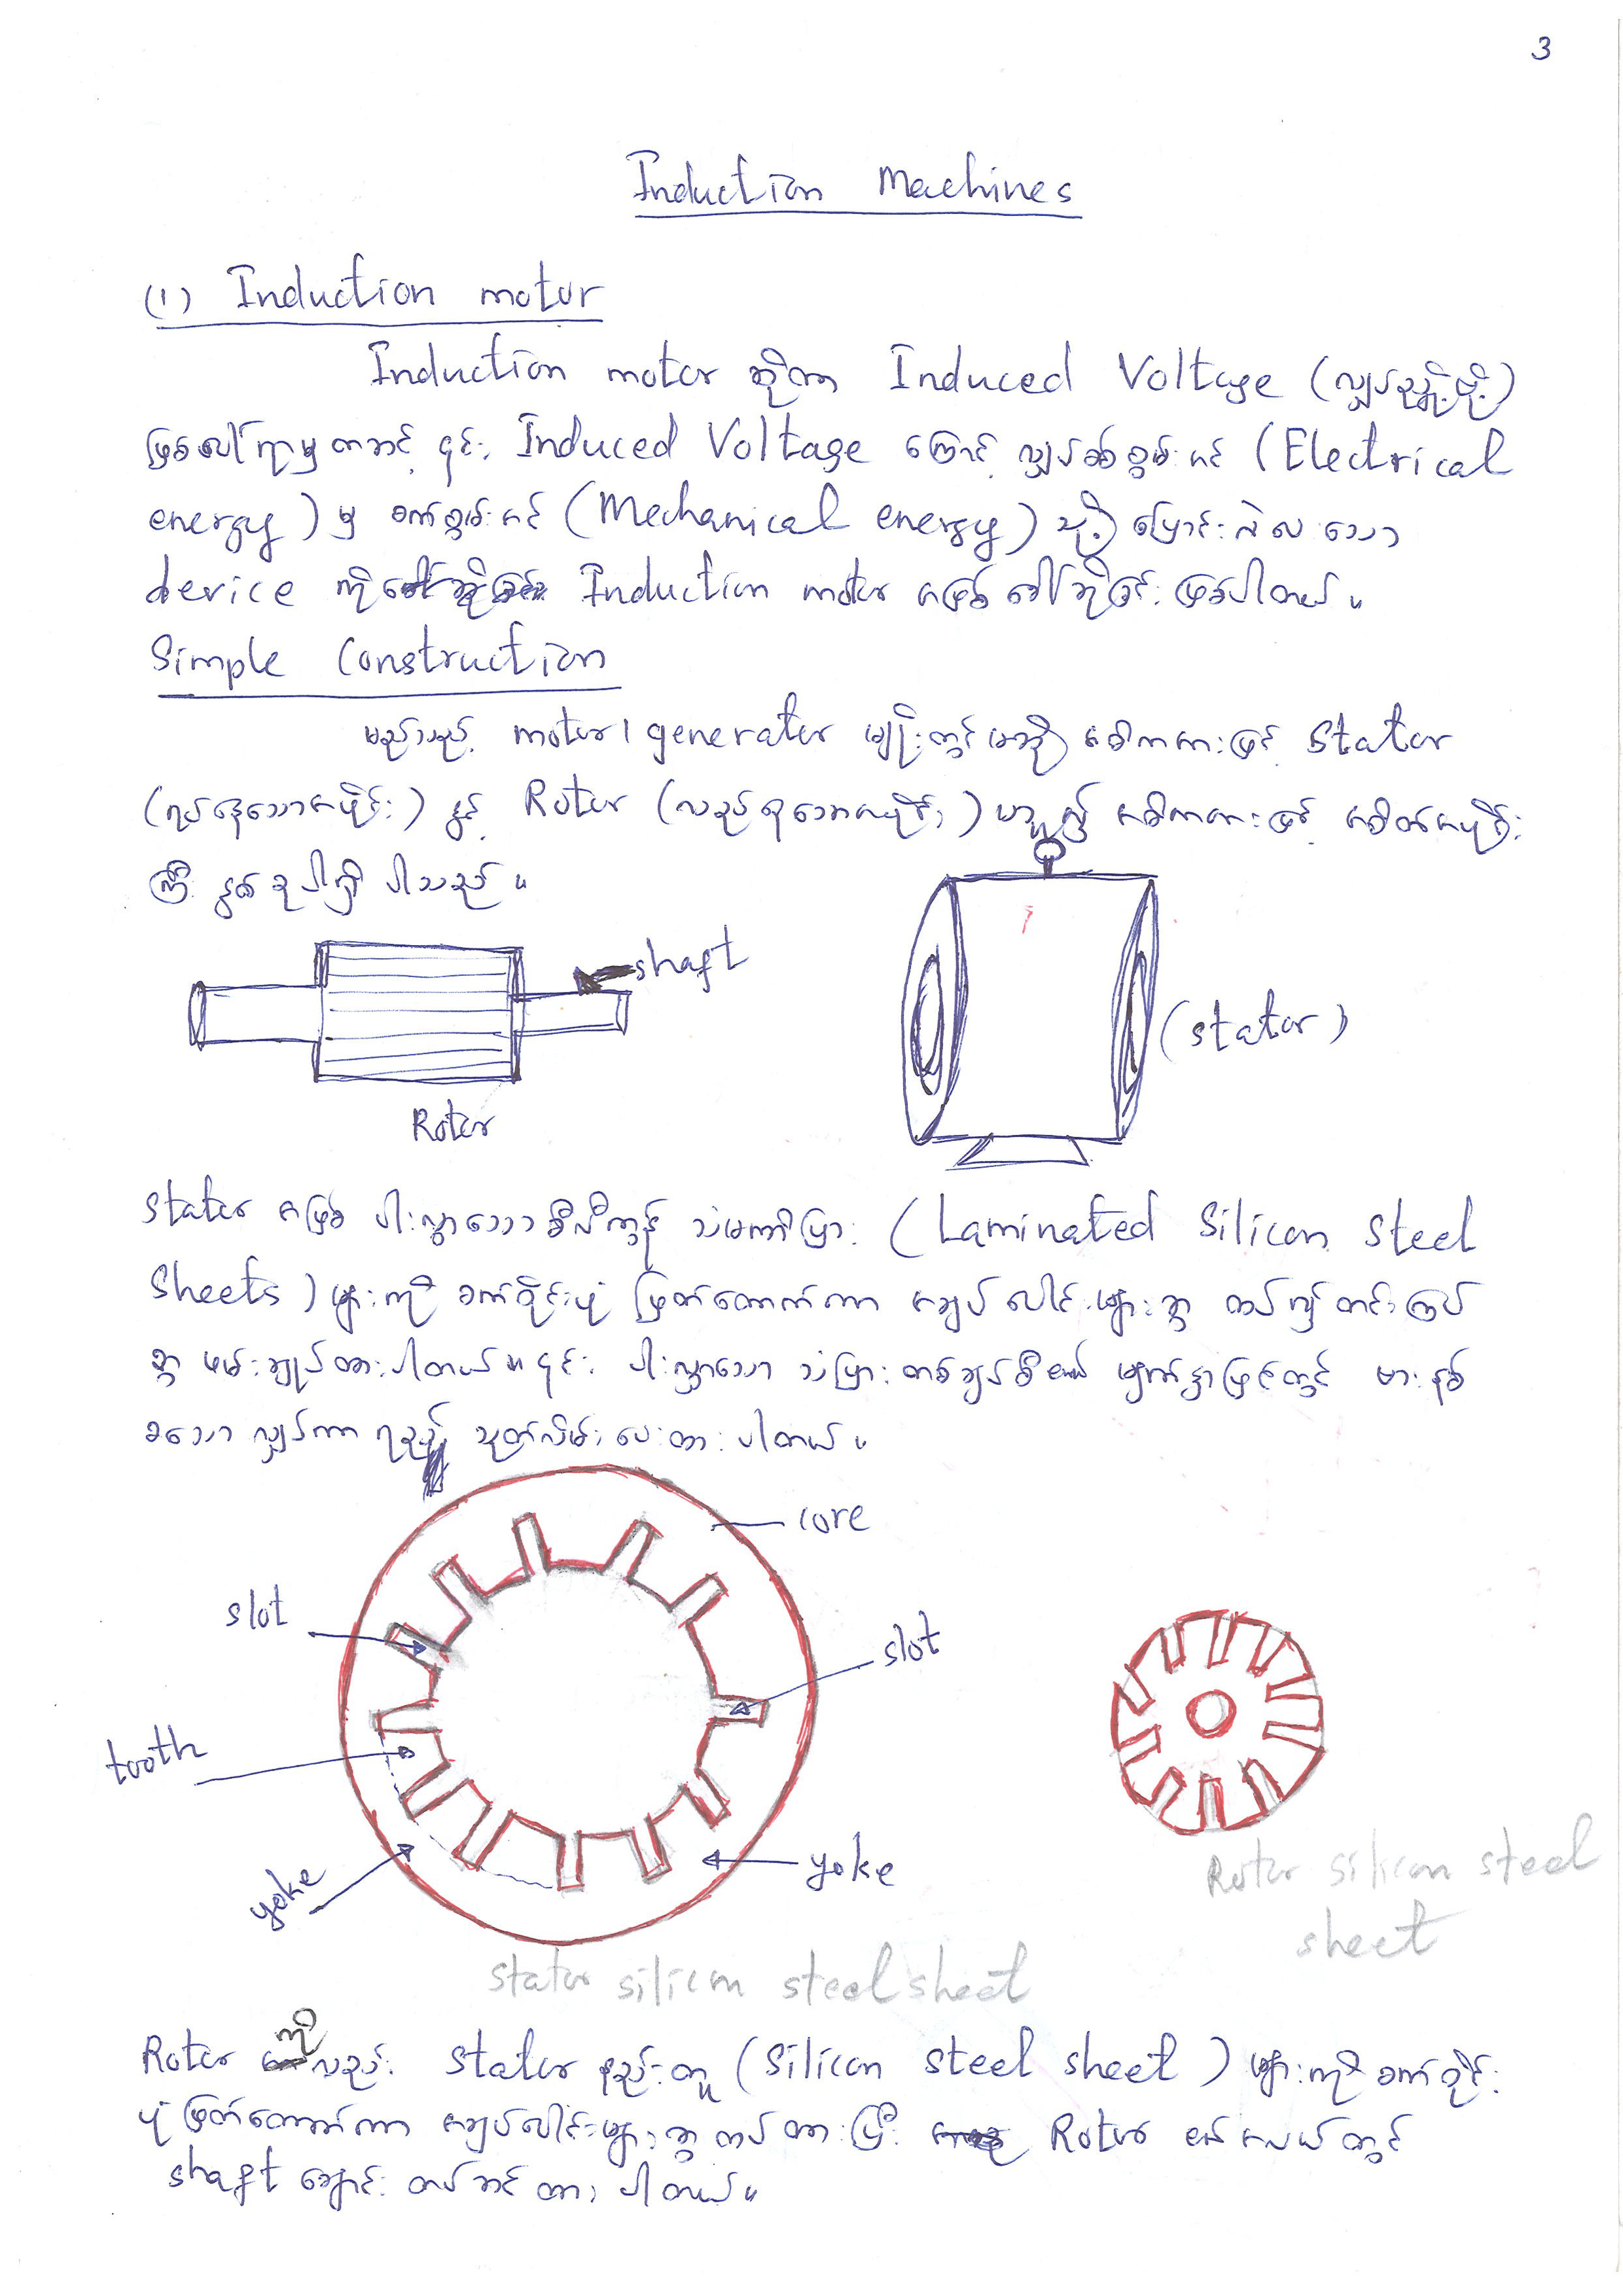 3
Induction Machines
(1) Induction motor
Induction motor ဆိုတာ Induced Voltage (လျှပ်ညှို့ဗို့)
ဖြစ်ပေါ်ရာမှတဆင့် ၎င်း Induced Voltage ကြောင့် လျှပ်စစ်စွမ်းအင် (Electrical
energy) မှ စက်စွမ်းအင် (Mechanical energy) သို့ ပြောင်းလဲပေးသော
device ကို Induction motor အဖြစ် ခေါ်ဆိုခြင်း ဖြစ်ပါတယ်။
Simple Construction
မည်သည့် motor/generator မျိုးတွင်မဆို အဓိကအားဖြင့် Stator
(ရပ်နေသောအပိုင်း) နှင့် Rotor (လည်ပတ်သောအပိုင်း) ဟူ၍ အဓိကအားဖြင့် အစိတ်အပိုင်း
ကြီး နှစ်ခုပါရှိပါသည်။
shaft
(stator)
Rotor
Stator အဖြစ် ပါးလွှာသော ဆီလီကွန် သံမဏိပြား (Laminated Silicon Steel
Sheets) များကို စက်ဝိုင်းပုံ ဖြတ်တောက်ကာ အချပ်ပေါင်းများစွာ ထပ်၍ တင်းကြပ်
စွာ ဖမ်းချုပ်ထားပါတယ်။ ၎င်း ပါးလွှာသော သံပြားတစ်ချပ်စီ၏ မျက်နှာပြင်တွင် ဗားနစ်
ခေါ် လျှပ်ကာရည် သုတ်လိမ်းပေးထားပါတယ်။
core
slot
slot
tooth
yoke
yoke
Rotor silicon steel
sheet
stator silicon steel sheet
Rotor ကိုလည်း Stator နည်းတူ (Silicon steel sheet) များကို စက်ဝိုင်း
ပုံ ဖြတ်တောက်ကာ အချပ်ပေါင်းများစွာ ထပ်ထားပြီး Rotor ၏ အလယ်တွင်
shaft ချောင်း တပ်ဆင်ထားပါတယ်။